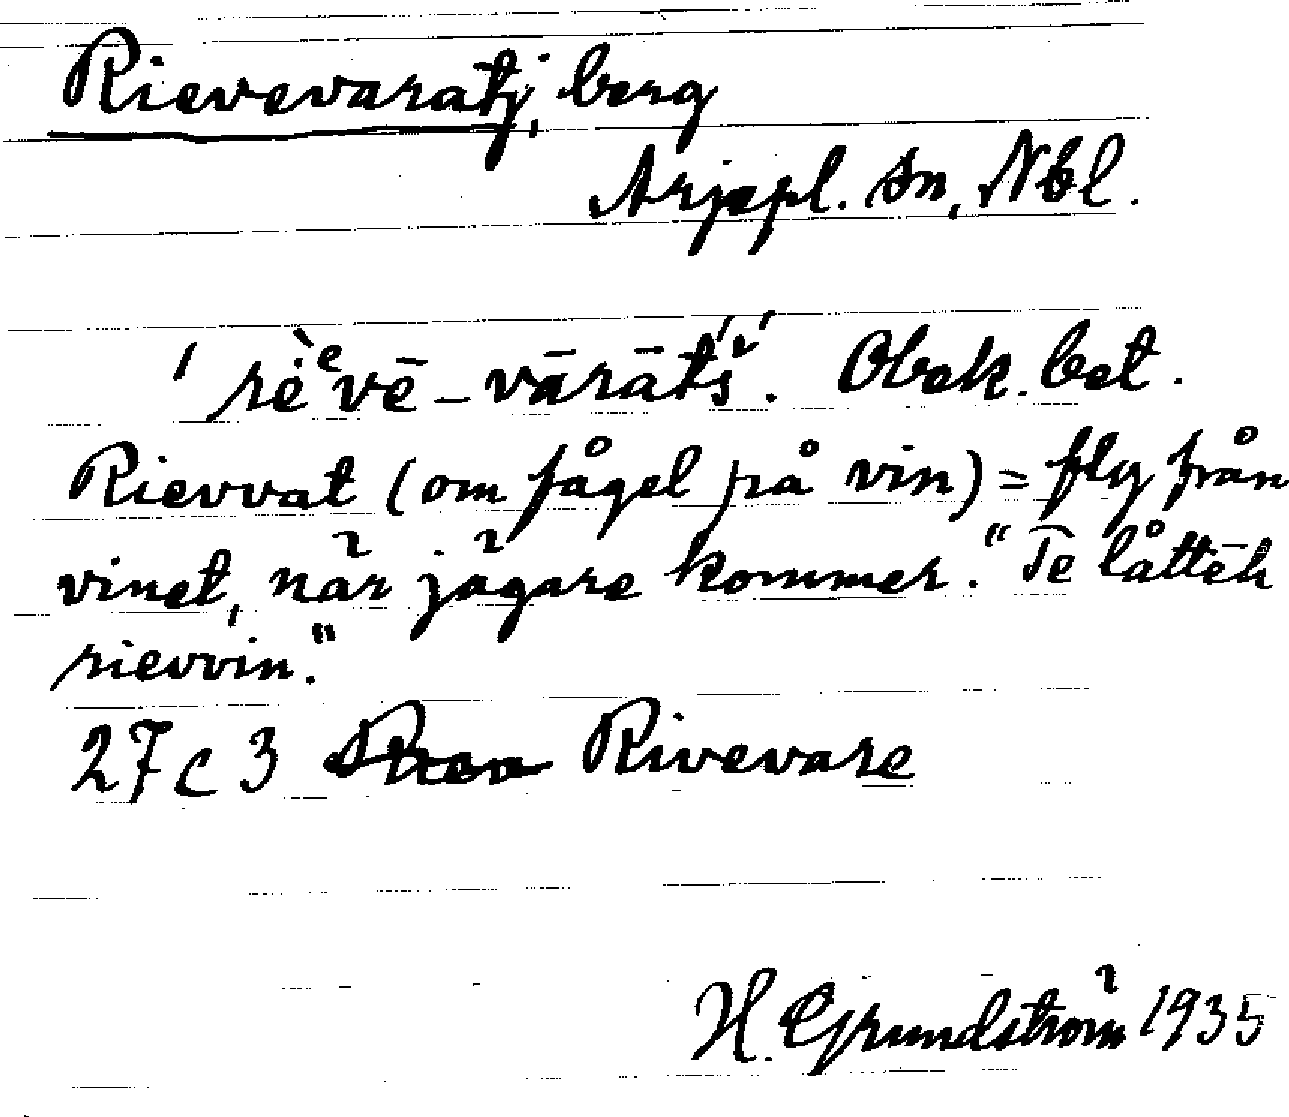 Rievevaratj, berg
Arjepl. sn, Nbl.
Obek. bet.
Rievvat (om fågel på vin) = fly från
vinet, når jägare kommer. "Te låttēh
rievvin."
27 c 3 Rivevare
H. Grundström 1935